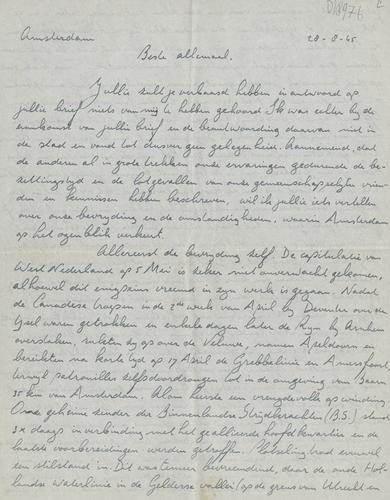 D18976
Amsterdam 28-8-45
Beste allemaal.
Jullie zult je verbaasd hebben in antwoord op
jullie brief niets van mij te hebben gehoord. Ik was echter bij de
aankomst van jullie brief en de beantwoording daarvan niet in
de stad en vond tot dusver geen gelegenheid. Aannemend, dat
de anderen al in grote trekken onze ervaringen gedurende de be-
zettingstijd en de lotgevallen van onze gemeenschappelijke vrien
den en kennissen hebben beschreven, wil ik jullie iets vertellen
over onze bevrijding en de omstandigheden, waarin Amsterdam
op het ogenblik verkeert.
Allereerst de bevrijding zelf. De capitulatie van
West Nederland op 5 Mei is zeker niet onverwacht gekomen,
alhoewel dit enigszins vreemd in zijn werk is gegaan. Nadat
de Canadese troepen in de 2de week van April bij Deventer over de
IJsel waren getrokken en enkele dagen later de Rijn bij Arnhem
overstaken, rukten zij op over de Veluwe, namen Apeldoorn en
bereikten na korte tijd op 17 April de Grebbelinie en Amersfoort,
terwijl patrouilles zelfs doordrongen tot in de omgeving van Baarn
35 km van Amsterdam. Alom heerste een vreugdevolle opwinding.
Onze geheime zender der Binnenlandse Strijdkrachten (B.S.) stond
3 x daags in verbinding met het geallieerd hoofdkwartier en de
laatste voorbereidingen werden getroffen. Plotseling trad evenwel
een stilstand in. Dit was temeer bevreemdend, daar de oude Hol-
landse waterlinie in de Gelderse vallei (op de grens van Utrecht en